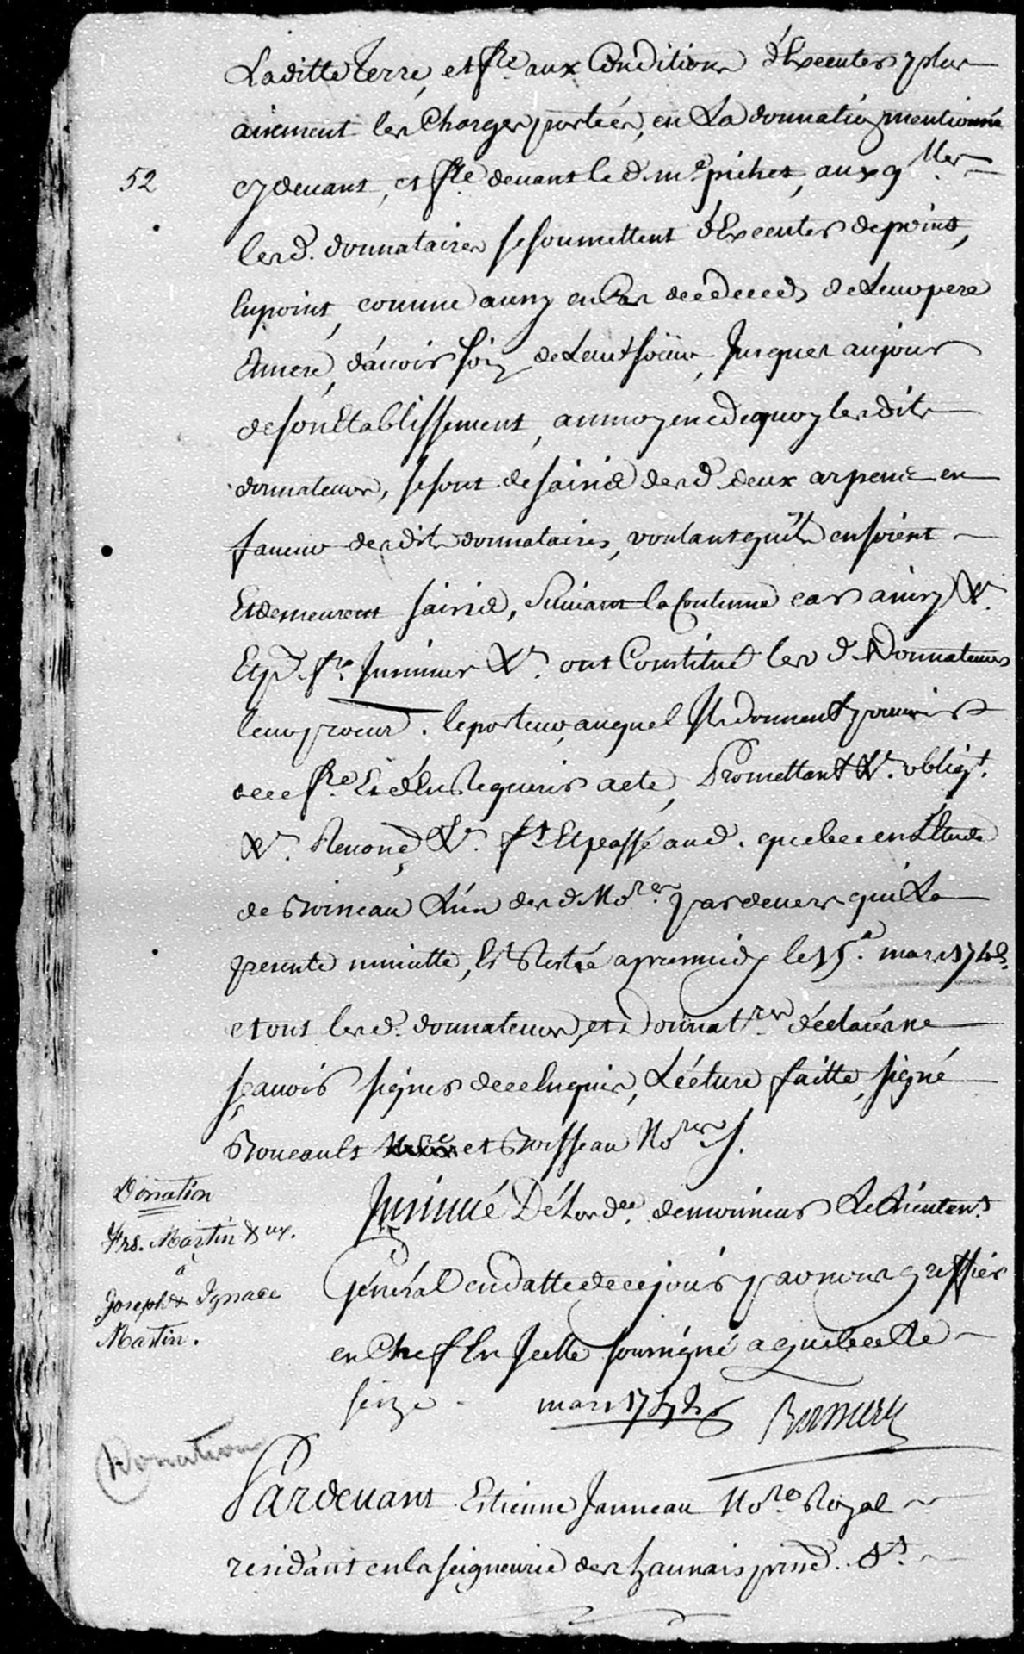 Laditte Terre, et f.re aux Conditions d'Executer plus
ainement les Charges portées, en La donnation mentionné
52
cy devant, et f.te devant le d. m.e pichet, aux q.lles
les d. donnataires se soumettent d'Executer de point
En point, comme aussy en Cas de deceds de Leur pere
Et mere, d'avoir soin de Leur soeur, Jusques au jour
de son Etablissement, au moyen de quoy lesdits
donnateurs, se sont desaisis des d. deux arpens en
faveur desdits donnataires, voulant qu'ils en soient
Et demeurent saisis, Suivant la Coutume car ainsy &.a
Et p.r f.re Insinuer &.a ont Constitué les d. Donnateurs
leur procur. le porteur, auquel Ils donnent pouvoir
de ce f.re Et d'En Requerir acte, Promettant &.a oblig.t
&.a Renonç &.a f.t Et passé aud. quebec en L'Etude
de Boisseau L'un des d. No.res pardevers qui La
presente minutte, Est Restée apres midy le 15.e mars 174
et ont les d. donnateurs et Donnat.res déclaré ne
sçavoir signer de ce Enquis, Lécture faitte, signé
Rouault et Boisseau No.res
Donation
Frs. Martin & ux.
à
Joseph & Ignace
Martin.
Insinué De L'ordre de monsieur Le Lieuten.t
Général en datte de ce jour par nous greffier
en Chef En Icelle soussigné a quebec Le
seize mars 174
Donation
Pardevant Estienne Janneau No.re Royal
residant en la seigneurie des